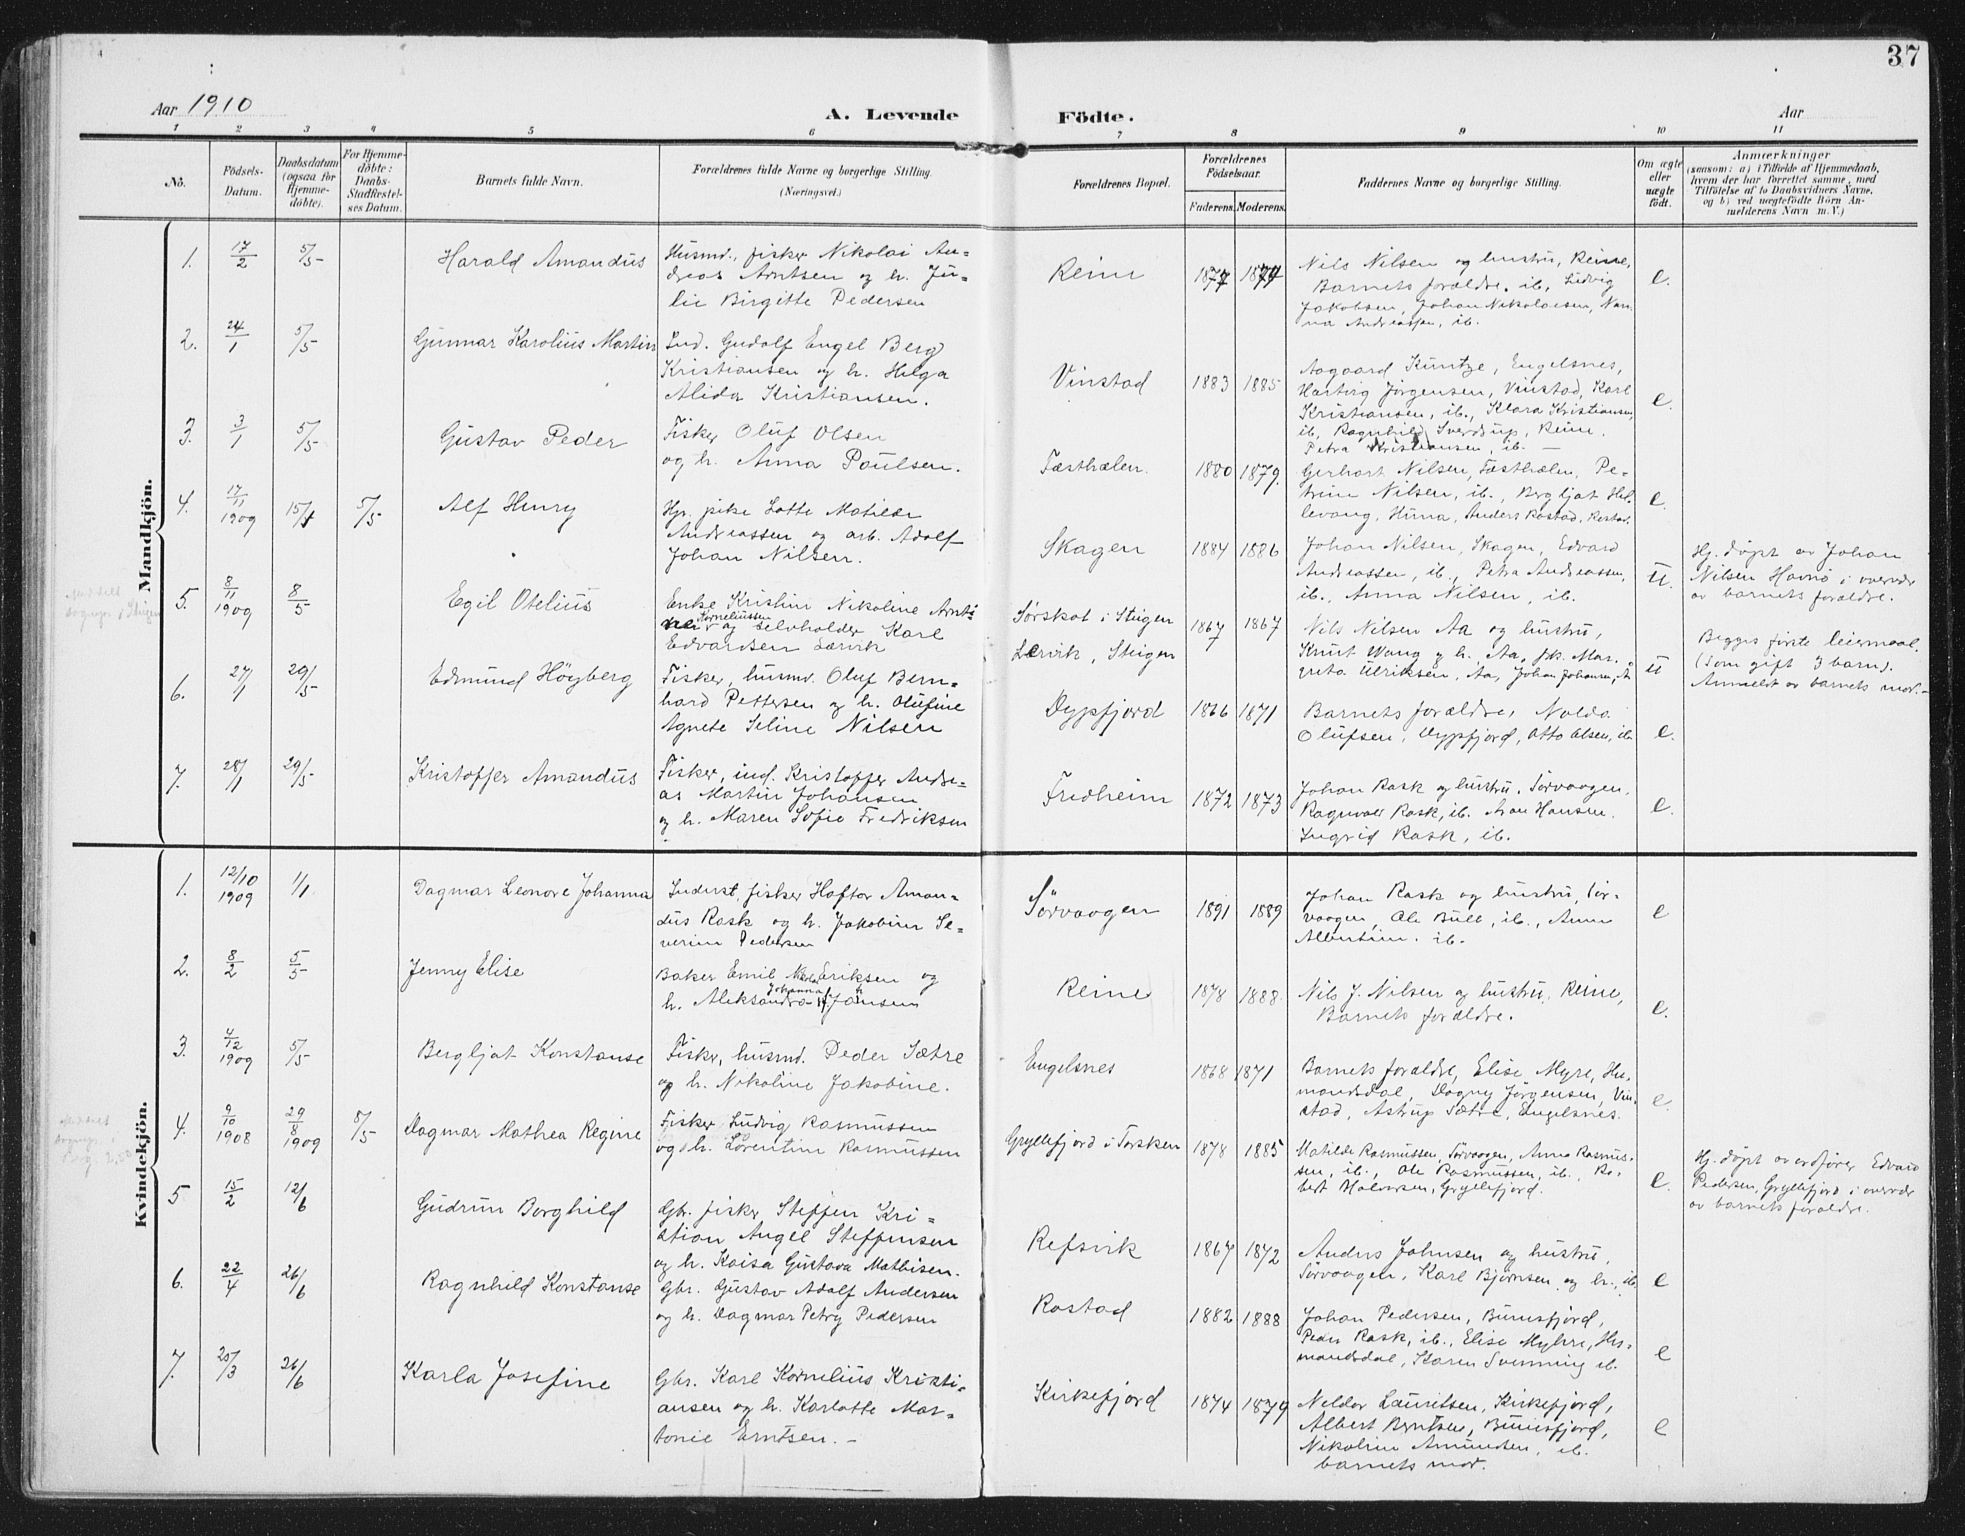 37
Aar 1910
A. Levende Födte.
Aar
1 2 3 4 5 6 7 8 9 10 11
No.
Födsels-
Datum.
Daabsdatum
(ogsaa for
Hjemme-
döbte).
For Hjemme-
döbte:
Daabs-
Stadfæstel-
ses Datum.
Barnets fulde Navn.
Forældrenes fulde Navne og borgerlige Stilling.
(Næringsvei.)
Forældrenes Bopæl.
Forældrenes
Födselsaar.
Faderens. Moderens.
Faddernes Navne og borgerlige Stilling.
Om ægte
eller
uægte
født.
Anmærkninger
(saasom: a) i Tilfælde af Hjemmedaab,
hvem der har forrettet samme, med
Tilföielse af to Daabsvidners Navne,
og b) ved uægtefödte Börn An-
melderens Navn m. V.)
Mandkjön.
1. 17/2 5/5 Harald Amandus
Husmd., fisker Nikolai An-
dreas Arntsen og h. Ju-
lie Birgitte Pedersen
Reine 1877 1874
Nils Nilsen og hustru, Reine,
Barnets forældre, ib., Ludvig
Jakobsen, Johan Nikolaisen, Nan-
na Andreassen, ib.
e.
2. 24/1 5/5 Gunnar Karolius Martin
Ind. Gudolf Engel Berg
Kristiansen og h. Helga
Alida Kristiansen.
Vinstad 1883 1885
Aagaard Kuntze, Engelsnes,
Hartvig Jørgensen, Vinstad, Karl
Kristiansen, ib., Klara Kristiansen,
ib., Ragnhild Sverdrup, Reine.
Petra Kristiansen, ib. —
e.
3. 3/1 5/5 Gustav Peder
Fisker Oluf Olsen
og h. Anna Paulsen.
Fæsthælen. 1880 1879.
Gerhart Nilsen, Fæsthælen, Pe-
trine Nilsen, ib., Bergljot Hel-
levang, Anders Rostad, Rostad.
e.
4. 17/11 1909 5/5 Alf Henry
Gp. pike Lotte Matilde
Andreassen og arb. Adolf
Johan Nilsen.
Skagen 1884 1886
Johan Nilsen, Skagen, Edvard
Andreassen, ib., Petra Andreassen,
ib., Anna Nilsen, ib.
u.
Hj. døpt av Johan
Nilsen Havnø i overvær
av barnets forældre.
5. 8/11 1909 8/5 Egil Otelius
Enke Kristine Nikoline Arnt-
Korneliussen
og selvholder Karl
Edvardsen Lervik
Sørskot i Steigen
Lervik, Steigen
1867 1867
Nils Nilsen Aa og hustru,
Knut Wang og h. Aa, pk. Mar-
greta Ulriksen, Aa, Johan Johansen, Aa
u
Begges første leiermaal.
(Som gift 3 barn).
Anmeldt av barnets mor. —
6. 27/1 29/5 Edmund Höyberg
Fisker, husmd. Oluf Bern-
hard Pettersen og h. Olufine
Agnete Seline Nilsen
Dypfjord 1866 1871
Barnets forældre,
Olufsen, Dypfjord, Otto Olsen, ib.
e.
7. 28/1 29/5 Kristoffer Amandus
Fisker, ind. Kristoffer Andre-
as Martin Johansen
og h. Maren Sofie Fredriksen
Fredheim 1872 1873
Johan Rask og hustru, Sørvaagen,
Ragnvald Rask, ib. Aron Hansen.
Ingrid Rask, ib.
e.
Kvindekjön.
1. 12/10 1909 1/1 Dagmar Leonore Johanna
Inderst, fisker Hoftor Aman-
dus Rask og h. Jakobine Se-
verine Pedersen
Sörvaagen 1891 1889
Johan Rask og hustru, Sør-
vaagen, Ole Bull, ib., Anna
Albertine. ib.
e
2. 8/2 5/5 Jenny Elise
Baker Emil Eriksen og
Johanna
h. Aleksandra Jansen
Reine 1878 1888.
Nils J. Nilsen og hustru, Reine,
Barnets forældre.
e.
3. 4/12 1909 5/5 Bergljot Konstanse
Fisker, husmd. Peder Sætre
og h. Nikoline Jakobine.
Engelsnes 1868 1871
Barnets forældre, Elise Myre, Hu-
mandsdal, Dagny Jørgensen, Vin-
stad, Astrup Sætre, Engelsnes.
e.
4. 9/10 1908 29/8 1909 5/5 Dagmar Mathea Regine
Fisker Ludvig Rasmussen
og h. Lorentine Rasmussen
Gryllefjord i Torsken 1878 1885
Matilde Rasmussen, Sørvaagen, Anna Rasmus-
sen, ib., Ole Rasmussen, ib., Ro-
bert Halvorsen, Gryllefjord.
e.
Hj. døpt av ordfører Edvard
Pedersen, Gryllefjord i overvær
av barnets forældre.
5 15/2 12/6 Gudrun Borghild
Gbr. fisker Steffen Kri-
stian Angel Steffensen
og h. Kaisa Gustava Mathisen.
Refsvik 1867 1872
Anders Johnsen og hustru,
Sørvaagen, Karl Bjørnsen og h., ib.
e
6. 22/4 26/6 Ragnhild Konstanse
Gbr. Gustav Adolf Andersen
og h. Dagmar Petry Pedersen
Rostad 1882 1888
Johan Pedersen, Bunesfjord,
Peder Rask, ib., Elise Myhre, Hu-
mandsdal, Karen Svenning ib.
e
7. 20/3 26/6 Karla Josefine
Gbr. Karl Kornelius Kristi-
ansen og h. Karlotte Mar-
tonie Erntsen. —
Kirkefjord 1874 1879
Neldor Lauritsen, Kirkefjord,
Albert Berntsen, Bunesfjord,
Nikoline Amundsen, ib.
barnets mor.
e